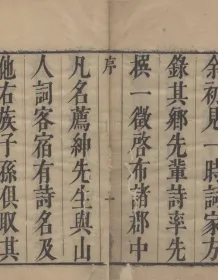 余初見一時詞家方
錄其鄉先輩詩率先
撰一徵啓布諸郡中
序
一
凡名薦紳先生與山
人詞客宿有詩名及
他右族子孫俱取其